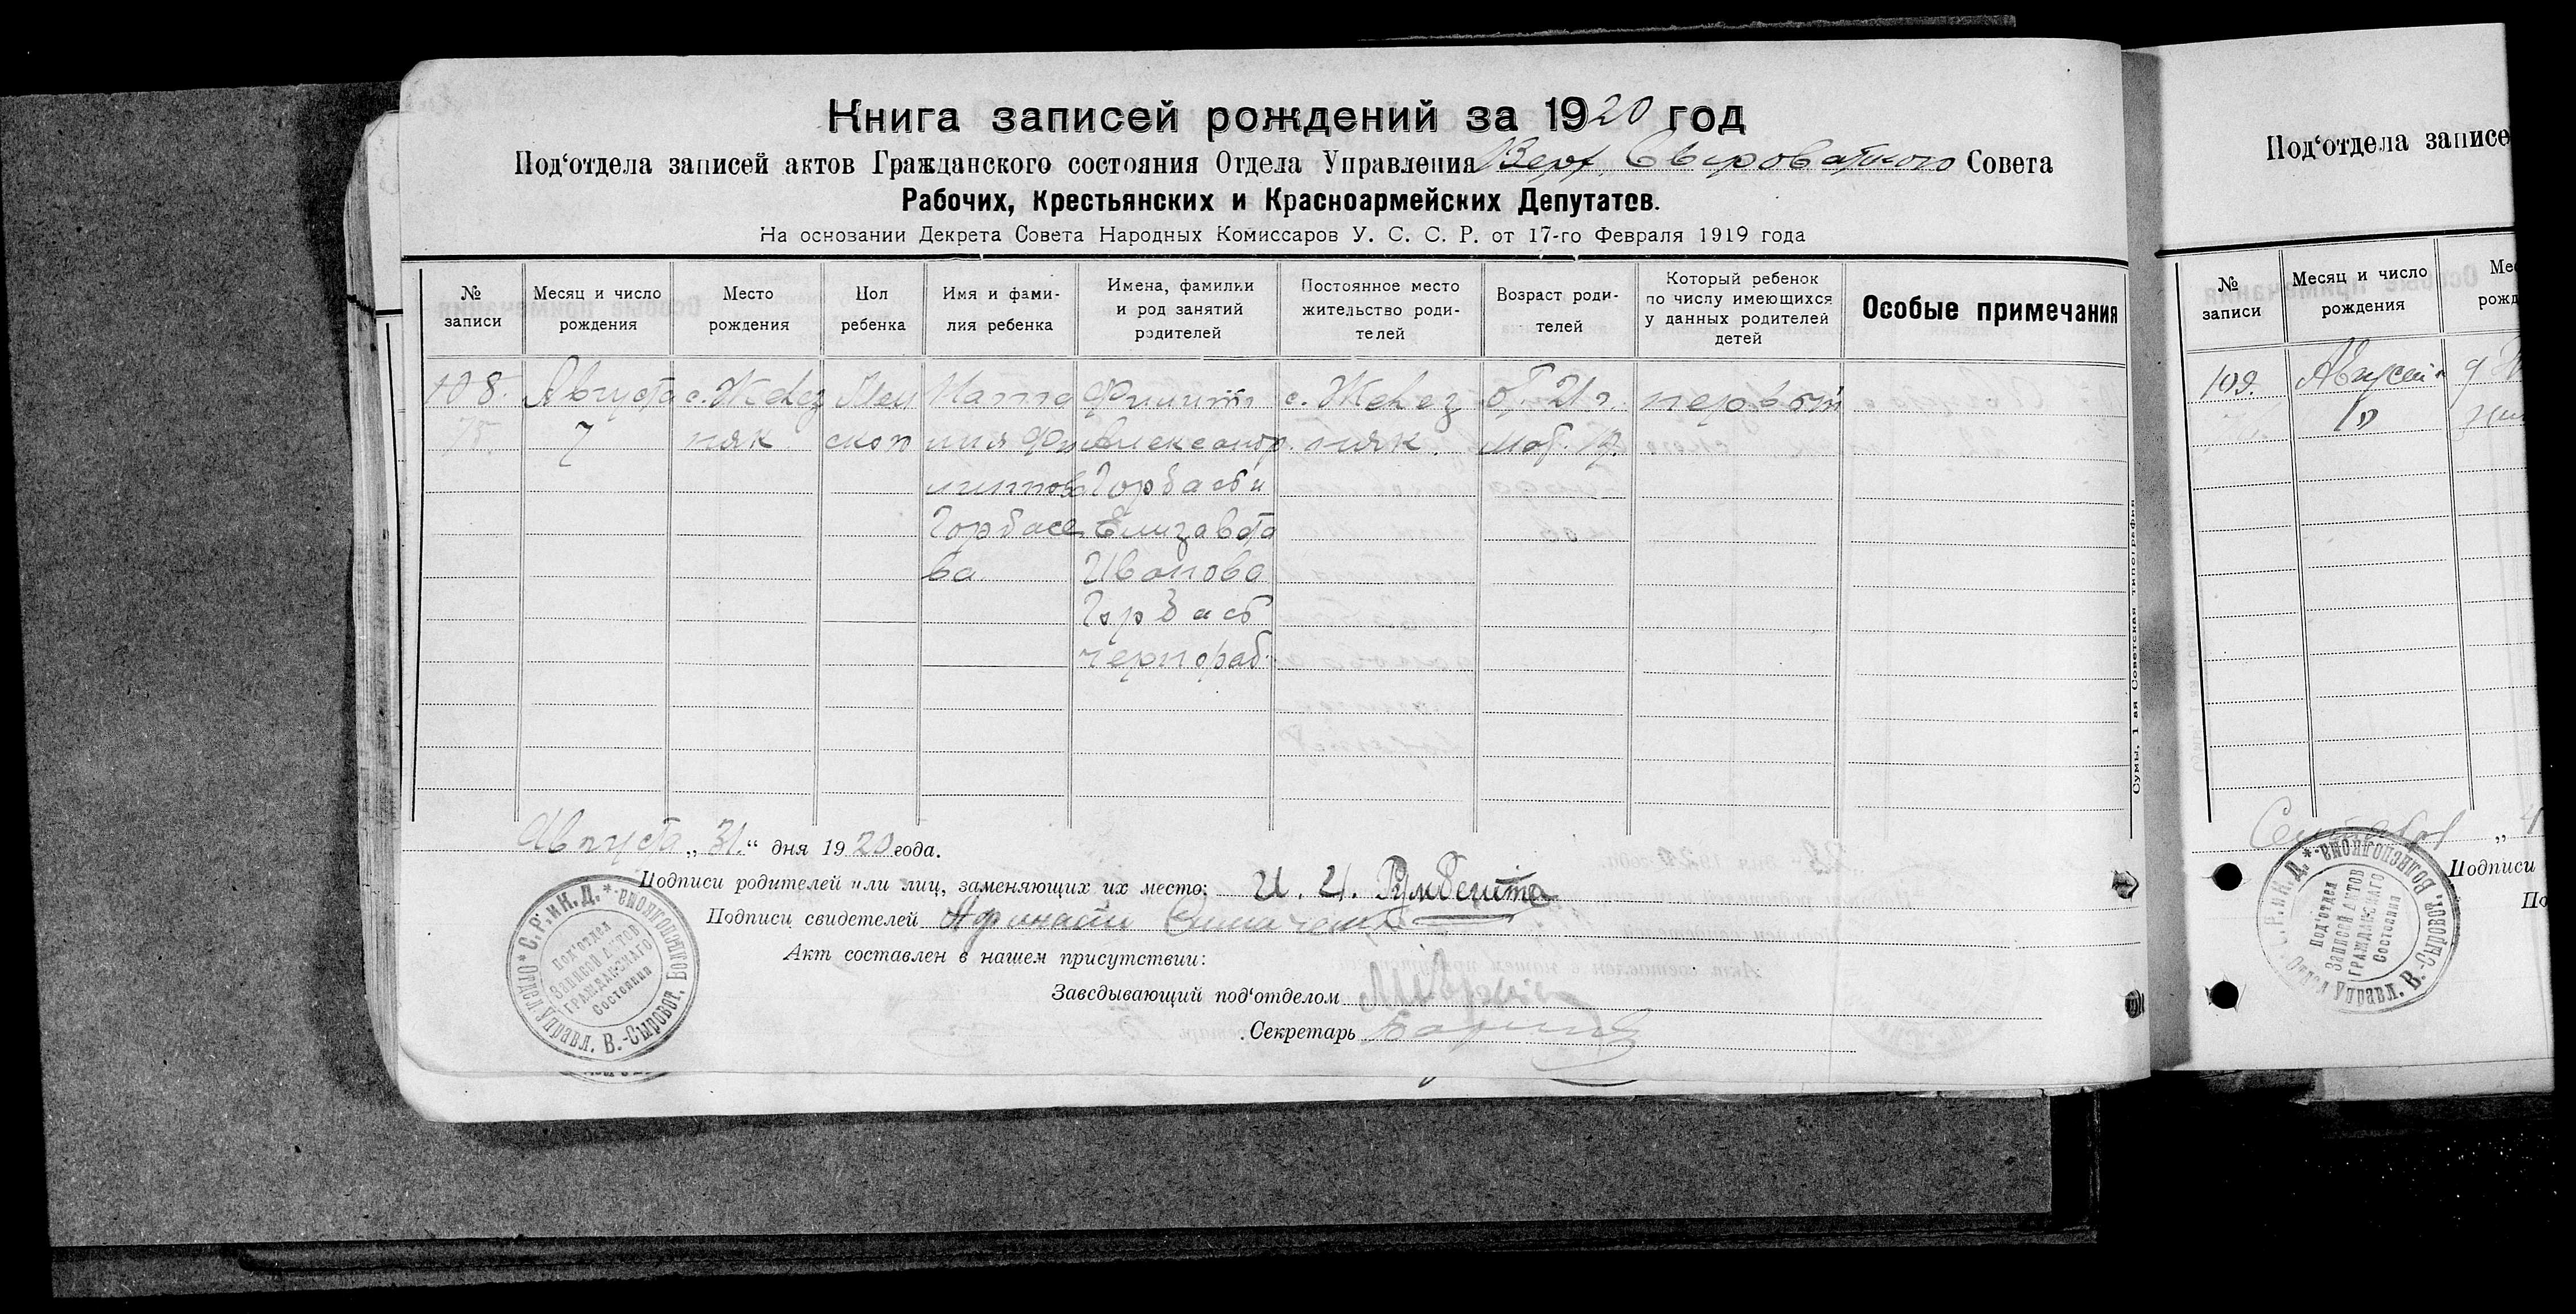 Книга записей рождений за 1920 год
Под‘отдела записей актов Гражданского состояния Отдела Управления Верх. Сыроватского Совета
Рабочих, Крестьянских и Красноармейских Депутатов.
На основании Декрета Совета Народных Комиссаров У. С. С. Р. от 17-го Февраля 1919 года
№ записи
Месяц и число рождения
Место рождения
Пол ребенка
Имя и фами-
лия ребенка
Имена, фамилии
и род занятий
родителей
Постоянное место
жительство роди-
телей
Возраст роди-
телей
Который ребенок
по числу имеющихся
у данных родителей
детей
Особые примечания
108.
75.
Августа
7
с. Железняк
Жен
ског
Ната
лия Фи
липпов
Горбасе
ва
Филипп
Александр.
Горбась и
Елизавета
Иванова
Горбась
чернораб.
с. Желез
няк.
от. 21 г.
мат. 19.
первый
Сумы, 1 ая Советская типография
Августа „31.“ дня 1920 года.
Подписи родителей или лиц, заменяющих их место:
Подписи свидетелей
Акт составлен в нашем присутствии:
Заведывающий под‘отделом
Секретарь
Отдел Управл. В.-Сыроват. Волисполкома. * С. Р. и К. Д. *
Под‘отдел
Записей Актов
Гражданскаго
Состояния
Под‘отдела записе
№ записи
Месяц и число рождения
Мес
рожд
109.
Август
10
Сентября „4
Подписи
По
Отдел Управл. В.-Сыроват. Волисполкома. * С. Р. и К. Д. *
Под‘отдел
Записей Актов
Гражданскаго
Состояния